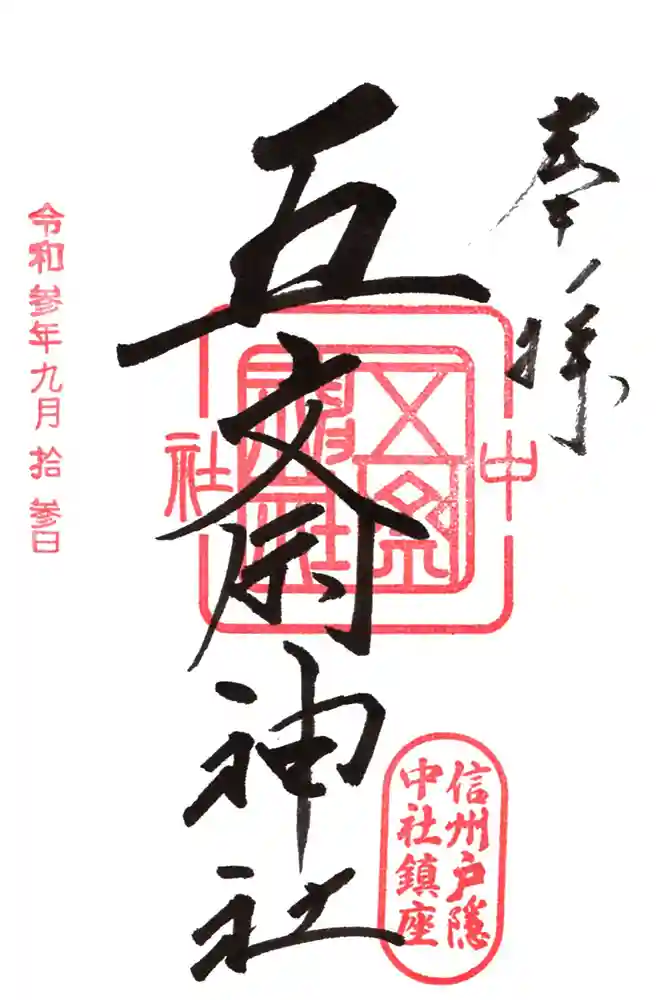 奉拝
五斎神社
中社
信州戸隠
中社鎮座
令和参年九月拾参日